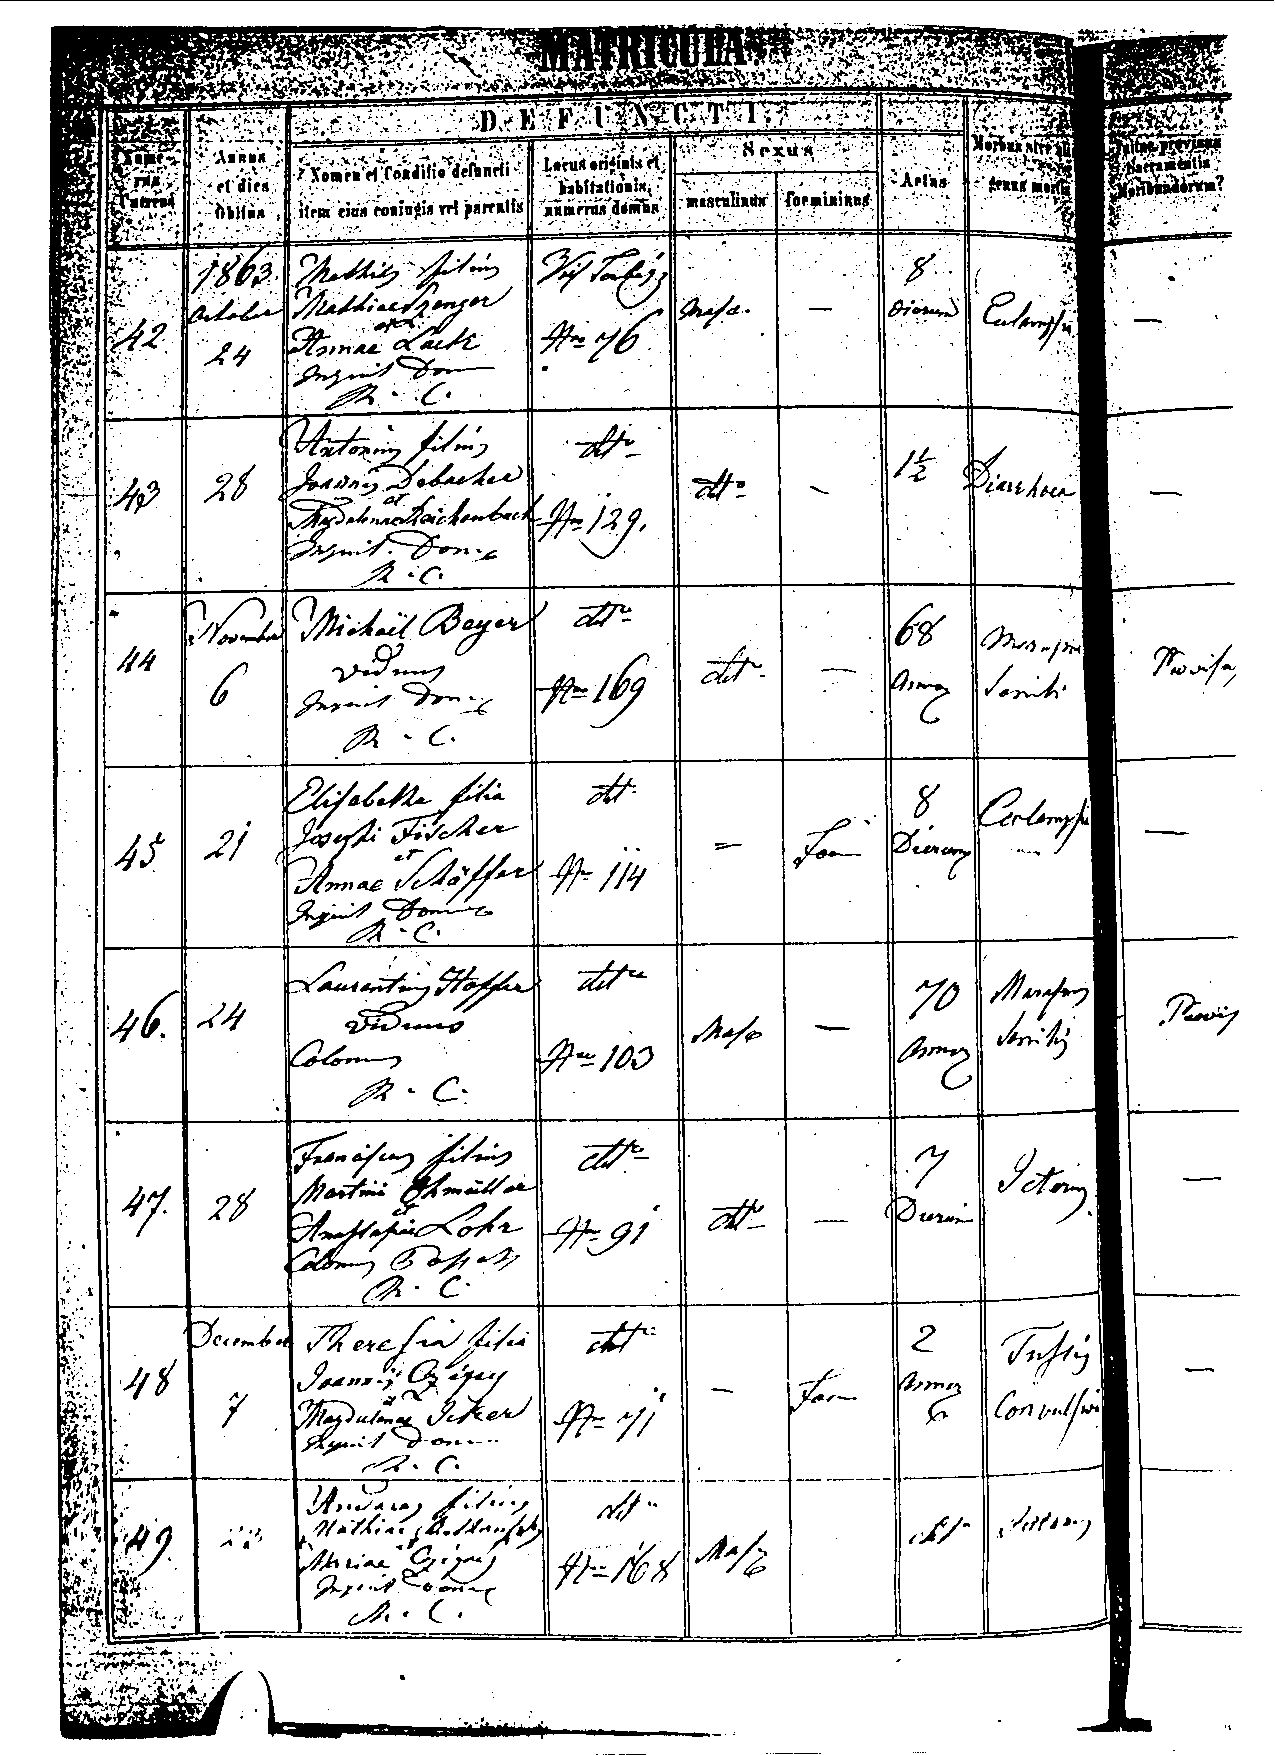 MATRICULA
DEFUNCTI
Numerus currens
Annus et dies obitus
Nomen et Conditio defuncti item eius coniugis vel parentis
Locus originis et habitationis, numerus domus
Sexus
masculinus
foemininus
Aetas
Morbus sive aliud genus mortis
previsus Sacramentis Moribundorum?
42
1863.
October
24
Mathias filius
Mathiae
et
Annae
Inquil Dom
R. C.
Nro 76
Masc.
—
8
Dierum
Eclampsia
—
43
28
Antonius filius
Joannis
et
Magdalenae Reichenbach
Inquil. Dom.
R. C.
dtto
Nro 129.
dtto
—
1½
Diarrhoea
—
44
November
6
Michaël Beyer
viduus
Inquil Dom.
R. C.
dtto
Nro 169
dtto
—
68
Annor
Senilis
Provisus
45
21
Elisabetha filia
Josephi Fischer
et
Annae Schäffer
Inquil Dom
R. C.
dtto
Nro 114
—
Foem
8
Dierum
Eclampsia
—
46.
24
Laurentius Hoffer
viduus
Colonus
R. C.
dtto
Nro 103
Masc
—
70
Annor
Marasmus
Senilis
Provis
47.
28
Franciscus filius
Martini
et
Anastasiae Lohr
Colonus
R. C.
dtto
Nro 91
dtto
—
7
Dierum
Icterus
—
48
December
7
Theresia filia
Joannis
et
Magdalenae
Inquil Dom
R. C.
dtto
Nro 71
—
Foem
2
Annor
Tussis
Convulsiva
—
49.
22
Andreas filius
Mathiae
et
Mariae
Inquil Dom
R. C.
dtto
Nro 168
Masc
dtto